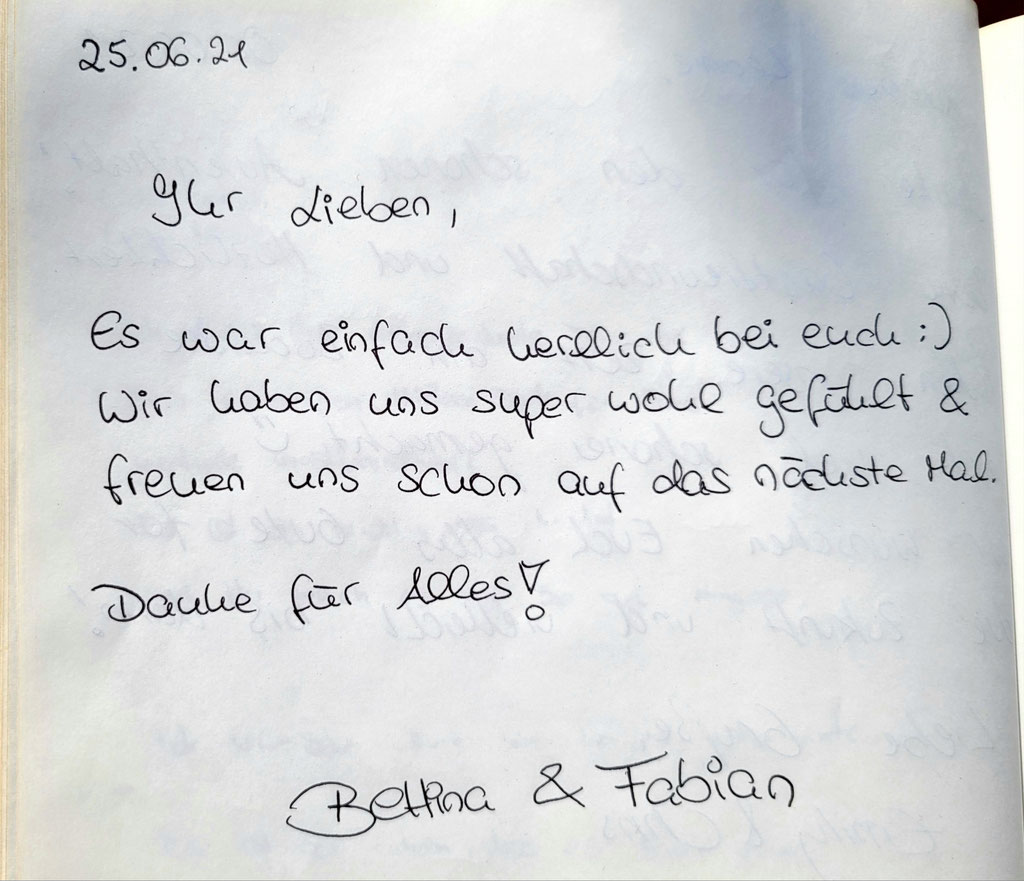 25.06.21
Ihr Lieben,
Es war einfach herrlich bei euch :)
Wir haben uns super wohl gefühlt &
freuen uns schon auf das nächste Mal.
Danke für Alles!
Bettina & Fabian